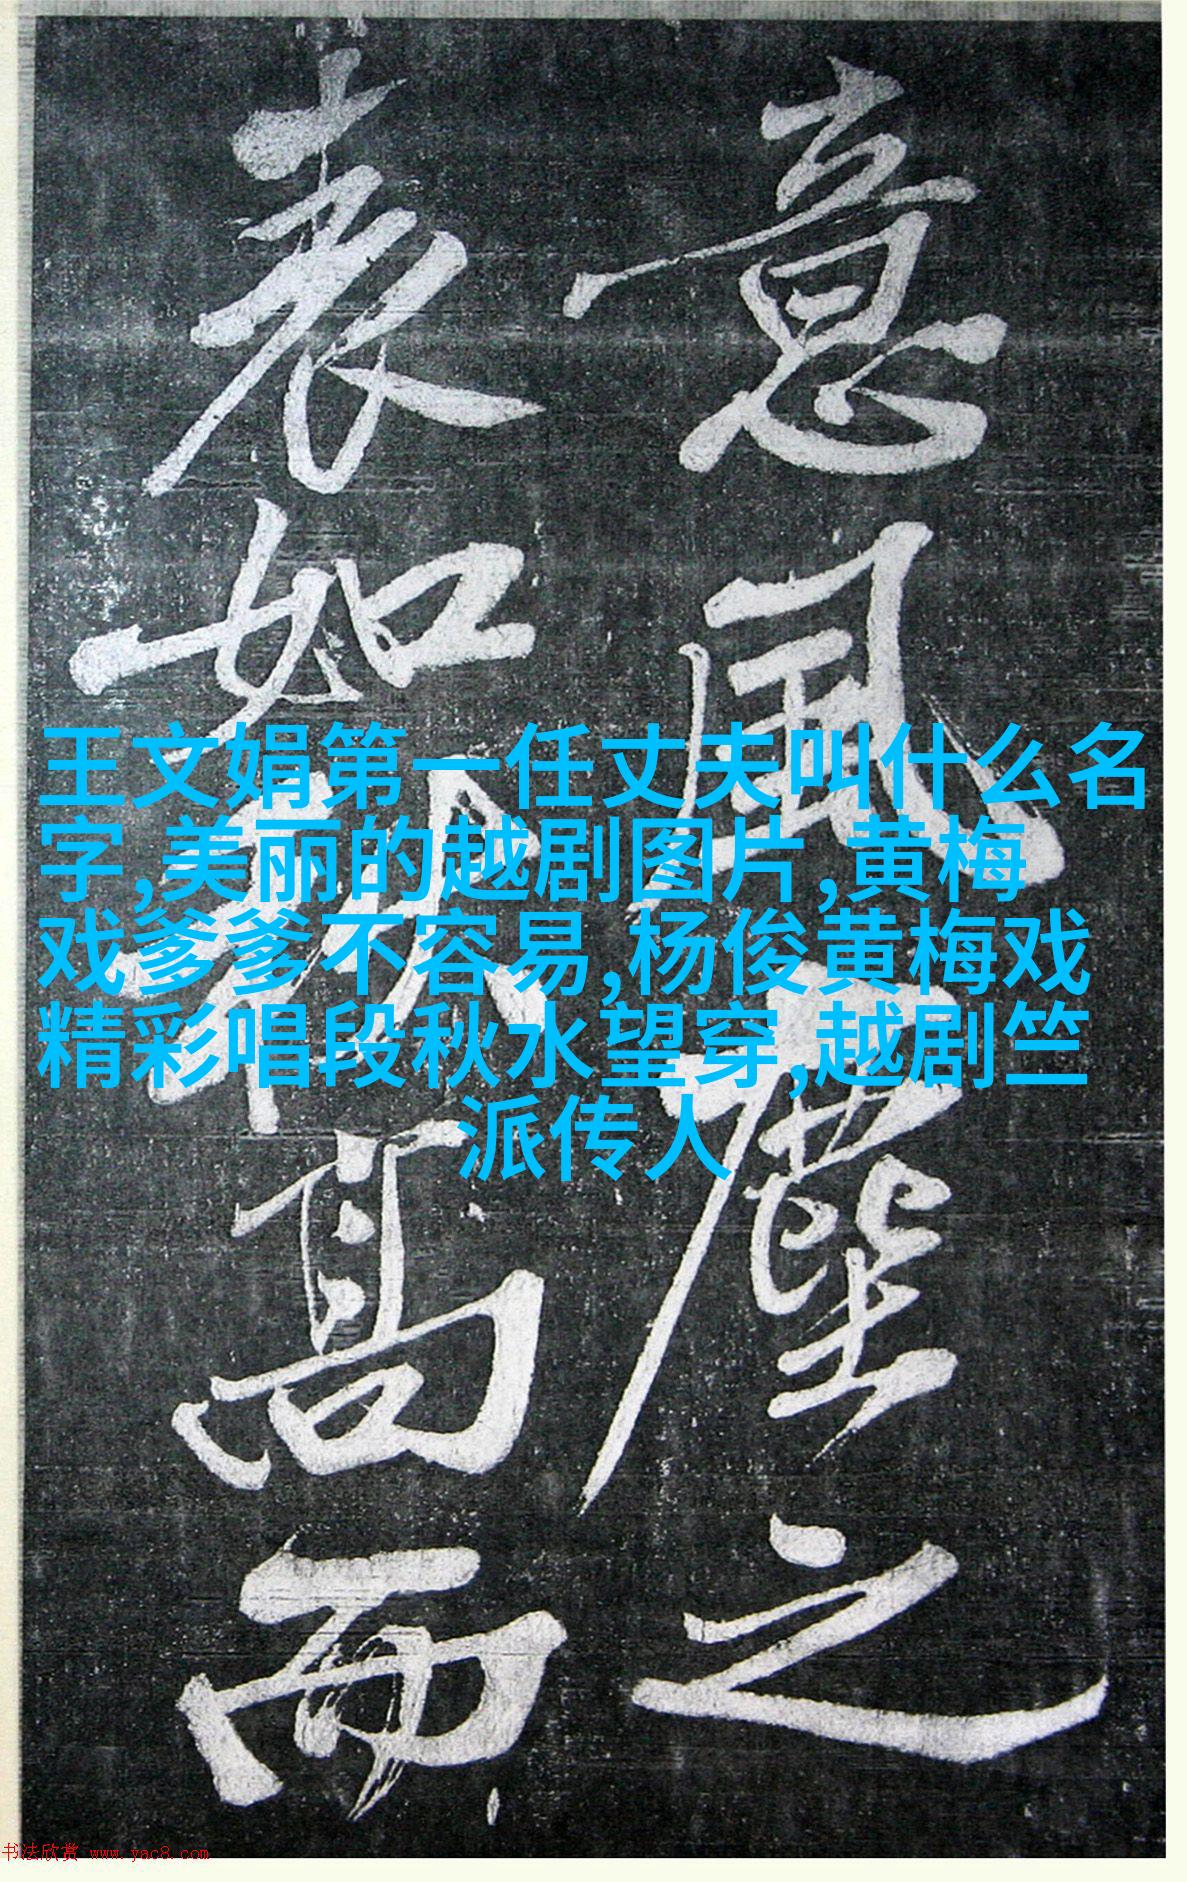 意風塵之
表如秋高而
王文娟第一任丈夫叫什么名
字,美丽的越剧图片,黄梅
戏爹爹不容易,杨俊黄梅戏
精彩唱段秋水望穿,越剧竺
派传人
书法欣赏 www.yac8.com